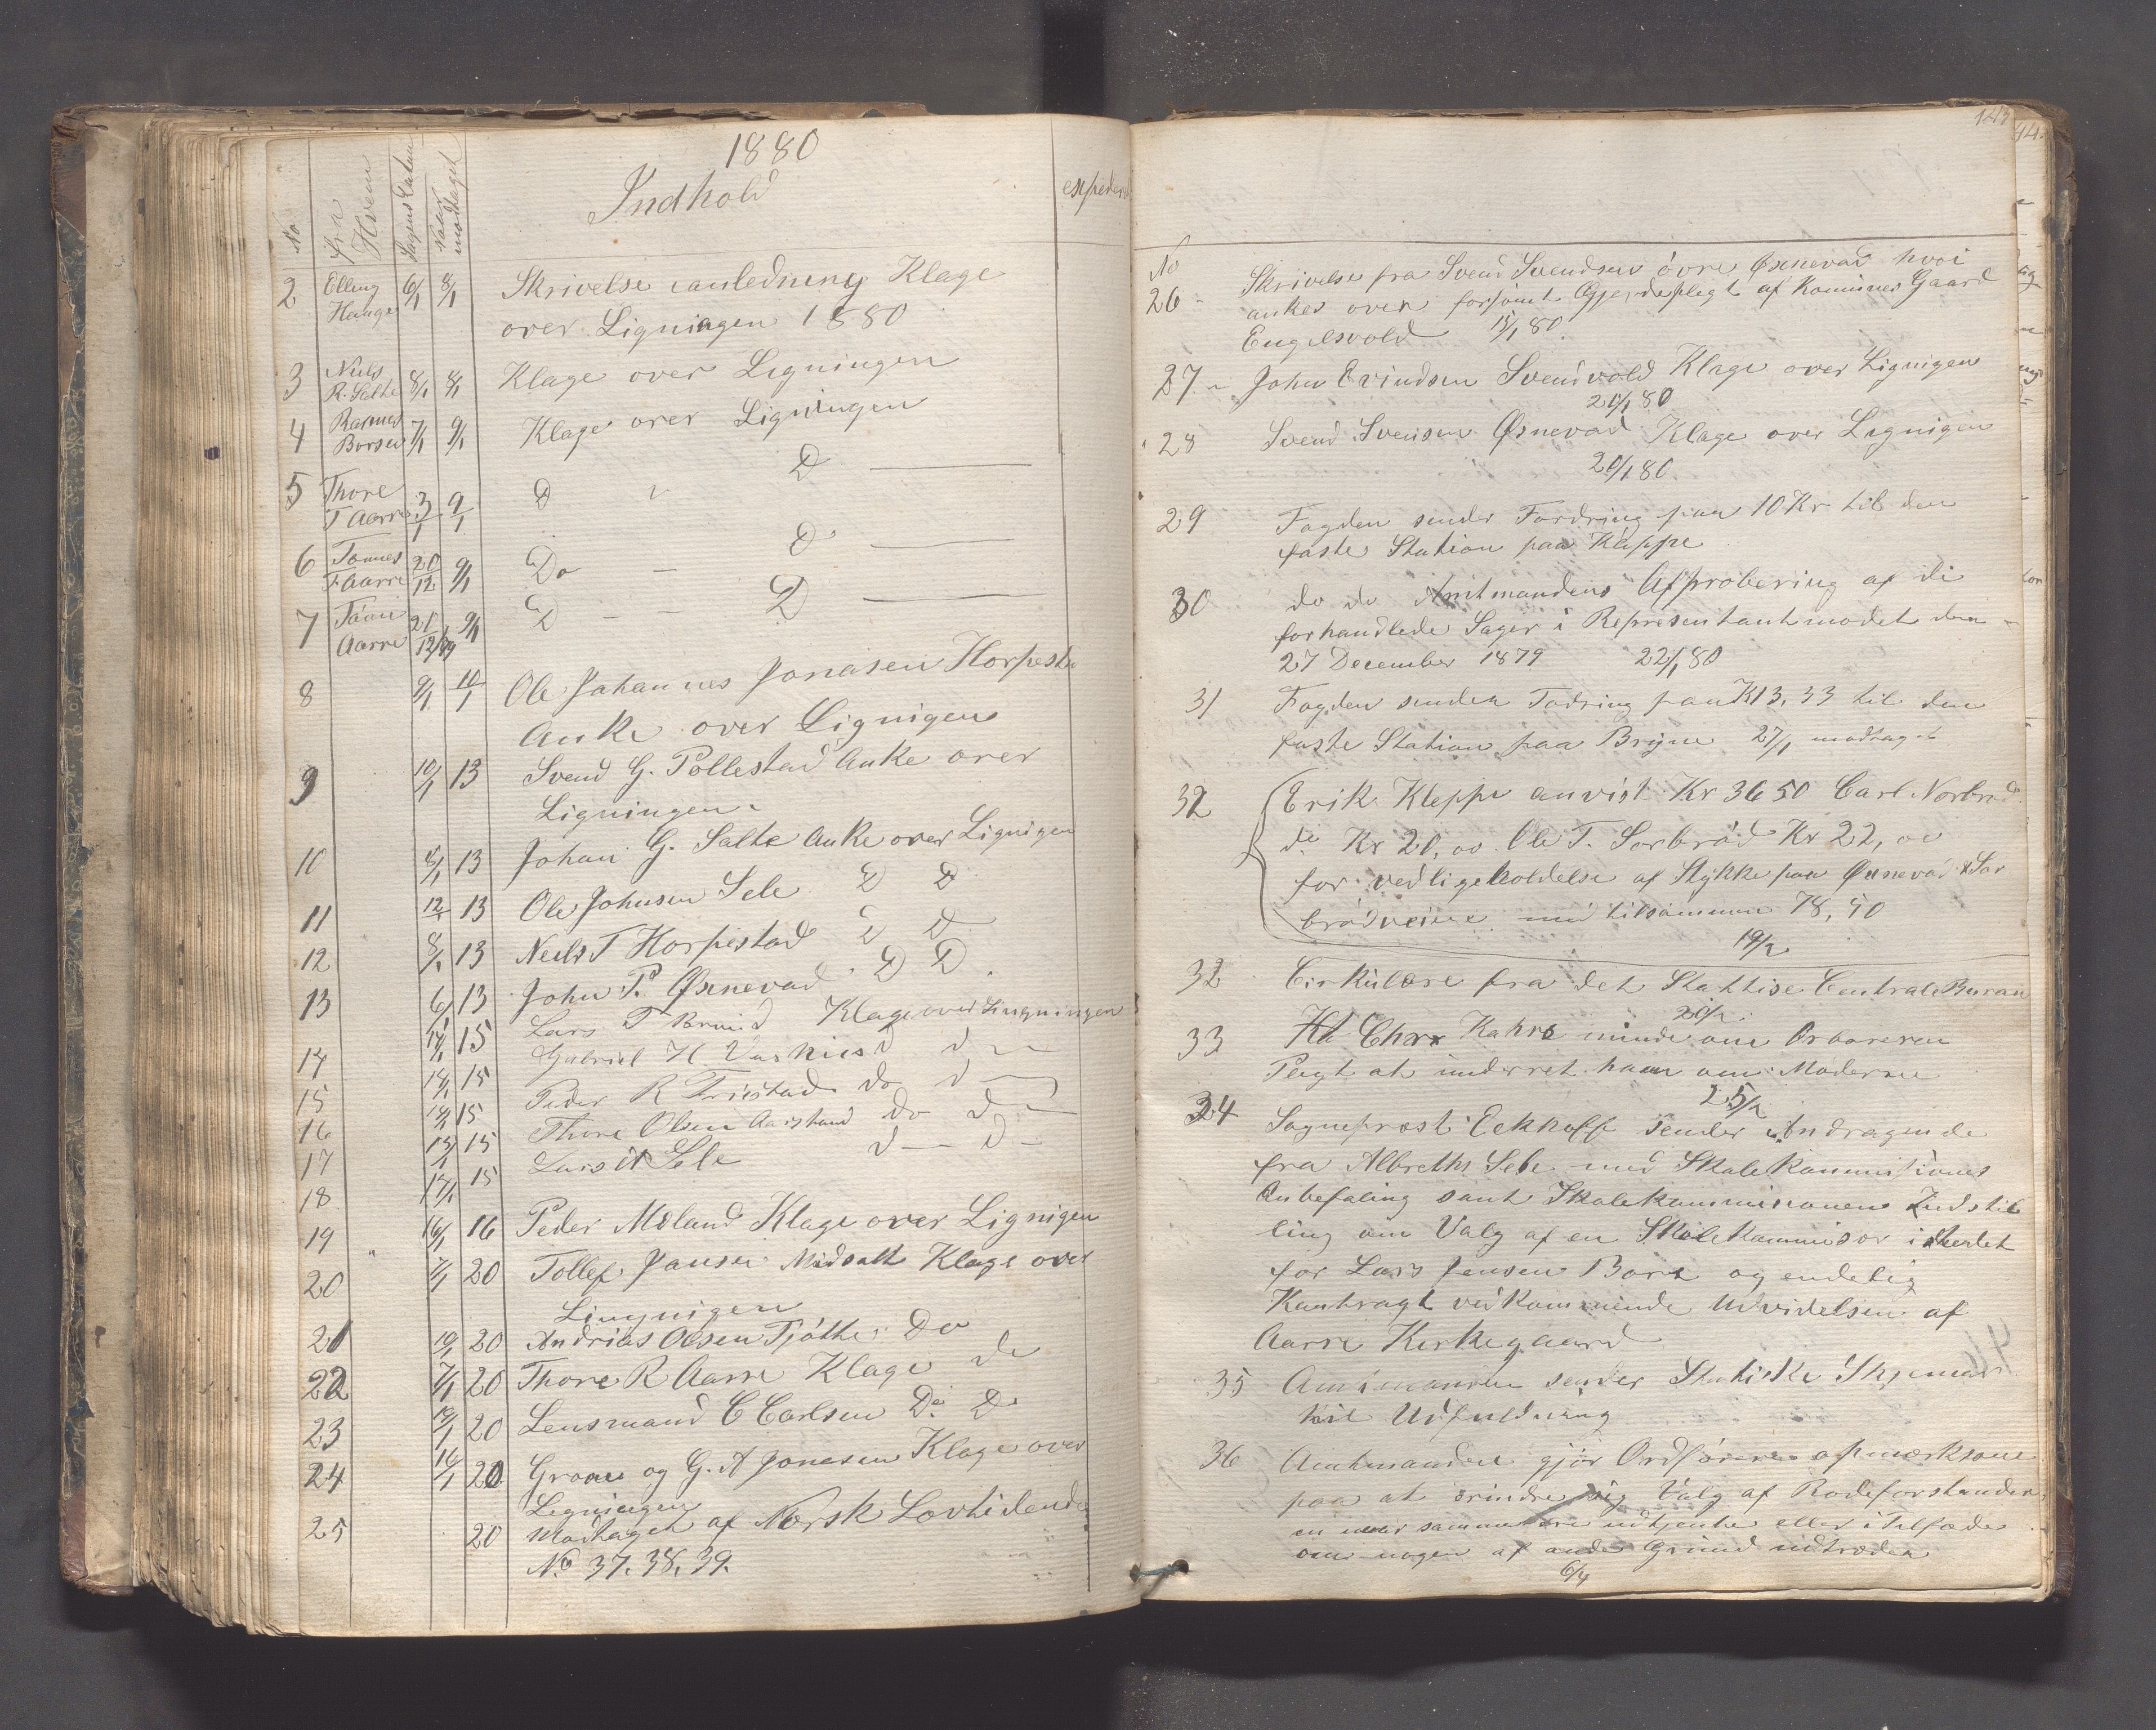 1880
No fra Hvem Sagens Datum naar modtaget Indhold expeder
2 Elling Hauge 6/1 8/1 Skrivelse i anledning Klage
over Ligningen 1880
3 Niels R. Salte 8/1 8/1 Klage over Ligningen
4 Rasmus Borsen 7/1 9/1 Klage over Ligningen
5 Thore T Aarre 3/1 9/1 D " D
6 Tonnes F Aarre 20/12 9/1 Do - D
7 Aarre 21/12 79 9/1 D - D
8 9/1 10/1 Ole Johannes Jonasen Horpestad
Anke over Lignigen
9 10/1 13 Svend G. Pollestad Anke over
Ligningen
10 8/1 13 Johan G. Salte Anke over Lignigen
11 12/1 13 Ole Johnsen Sele D D
12 8/1 13 Neils T Horpestad D D
13 6/1 13 John P. Øxnevad D D.
14/1 15 Lars T Klage over Lingningen
14 14/1 15 Gabriel H d d
15 14/1 15 Peder R Friestad do d
16 13/1 15 Thore Olsen do d
17 14/1 15 Lars Sele d - d -
18
19 " 16/1 16 Peder Møland Klage over Lignigen
20 7/1 20 Tollef Jansen Midsalt Klage over
Lingnigen
21 19/1 20 Andrias Olsen Tjøtte Do
22 7/1 20 Thore R Aarre Klage do
23 19/1 20 Lensmand C Carlsen Do Do
24 16/1 20 og G. A Jonesen Klage over
Ligningen
25 20 Modtaget af Norsk Lovtidende
No 37. 38. 39.
143
No
26 - Skrivelse fra Svend Svendsen øvre Øxnevad hvori
ankes over forsømt Gjerdepligt af Komunes Gaard
Engelsvold 15/1 80.
27 - John Evindsen Svendvold Klage over Lignigen
20/1 80
28 Svend Svensen Øxnevad Klage over Lignigen
20/1 80
29 Fogden sender Fordring paa 10 Kr til den
faste Station paa Kleppe
30 do do Amtmandens Approbering af de
forhandlede Sager i Representantmødet den
27 December 1879 22/1 80
31 Fogden sender Fodring paa K 13,33 til den
faste Station paa Bryne 27/1 modtaget
32 Erik Kleppe anvist Kr 36 50 Carl Norbrød
do Kr 20,00 Ole T. Sorbrød Kr 22,00
for vedligeholdelse af Stykke paa Øxnevad & Sør
brødveiene med tilsammen 78,50
19/2
32 Cirkulære fra det Stattise Centrale Buran
20/2
33 Chrx Kahrs minde om Orboreren
Pligt at underret ham om Moderne
25/2
34 Sognepræst Eckhoff sender Andragende
fra Albreth Sele med Skolekommisions
Anbefaling samt Skolekommisionen Indstil
ling om Valg af en Skolekommisør i stedet
for Lars Jensen Bore og endelig
Kontragt vedkommende Udvidelsen af
Aarre Kirkegaard
35 Amtmanden sender Statiske Skjemar
til Udfuldning
36 Amtmanden gjør Ordføreren opmærksom
paa at erindre sig Valg af Rodeforstander
en naar samme ere udtjente eller i tilfælde
om nogen af anden Grund udtræder
6/4